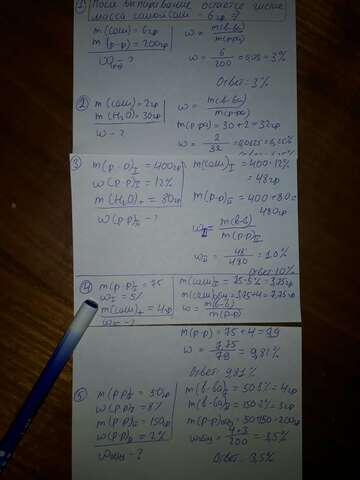 ① После выпаривание остается чистая
масса самой соли - 6гр ⇒
m(соли) = 6гр
m(р-р) = 200гр
w = m(в-ва) / m(р-ра)
w = 6/200 = 0,03 = 3%
Ответ = 3%
② m(соли) = 2гр
m(H₂O) = 30гр
w - ?
w = m(в-ва) / m(р-ра)
m(р-ра) = 30 + 2 = 32гр
w = 2/32 = 0,0625 = 6,25%
③ m(р-р)I = 400гр
w(р-р)I = 12%
m(H₂O)+ = 80гр
w(р-р)II - ?
m(соли)I = 400·12% = 48гр
m(р-р)II = 400 + 80 = 480гр
wII = m(в-в) / m(р-р)II
wII = 48/480 = 10%
Ответ 10%
④ m(р-р)I = 75
wI = 5%
m(соли)+ = 4гр
w - ?
m(соли)I = 75·5% = 3,75гр
m(соли)общ = 3,75 + 4 = 7,75гр
w = m(в-в) / m(р-р)
m(р-р) = 75 + 4 = 79
w = 7,75/79 = 9,81%
Ответ: 9,81%
⑤ m(р-р)I = 50гр
w(р-р)I = 8%
m(р-р)II = 150гр
w(р-р)II = 2%
wобщ - ?
m(в-ва)I = 50·8% = 4гр
m(в-ва)II = 150·2% = 3гр
m(р-ра)общ = 50+150 = 200гр
wобщ = 4+3/200 = 3,5%
Ответ = 3,5%